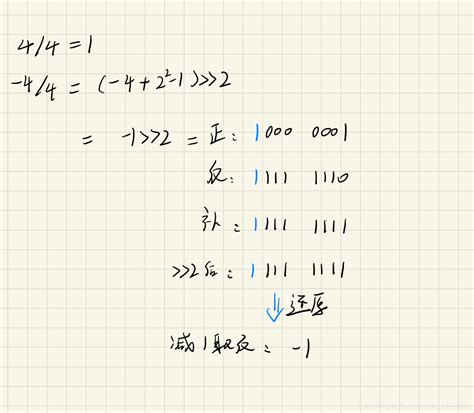 4/4 = 1
-4/4 = (-4+2²-1)>>2
= -1>>2 = 正: 1000 0001
反: 1111 1110
补: 1111 1111
>>2后: 1111 1111
⇓还原
减1取反 = -1